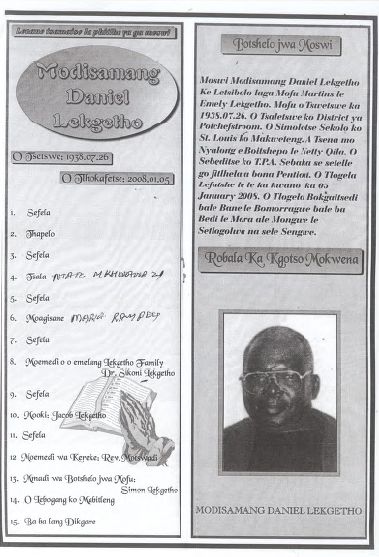 Lenane tsamaiso la phitlho ya ga moswi
Modisamang
Daniel
Lekgetho
O Tsetswe: 1938.07.26
O Tlhokafetse: 2008.01.05
1. Sefela
2. Thapelo
3. Sefela
4. Tsala NTATE
5. Sefela
6. Moagisane MARIA
7. Sefela
8. Moemedi o o emelang Lekgetho Family
Dr. Sikoni Lekgetho
9. Sefela
10. Mooki: Jacob Lekgetho
11. Sefela
12 Moemedi wa Kereke: Rev. Motswadi
13. Mmadi wa Botshelo jwa Mofu:
Simon Lekgetho
14. O Lebogang ko Mabitleng
15. Ba ba lang Dikgare
Botshelo jwa Moswi
Moswi Modisamang Daniel Lekgetho
Ke Lotsibolo laga Mofu Martins le
Emely Lekgetho. Mofu o Tswetswe ka
1938.07.26. O Tsaletswe ko District ya
Potchefstroom. O Simolotse Sekolo ko
St. Louis ko Makweteng. A Tsena mo
Nyalong e Boitshepo le Netty Qilo. O
Sebeditse ko T.P.A. Sebaka se seielle
go fitlhela a bona Pention. O Tlogela
Lefatshe le le ka kwano ka 05
January 2008. O Tlogela Bokgaitsedi
bale Bane le Bomorrague bale ba
Bedi le Mora ale Mongwe le
Setlogolwa na sele Sengwe.
Robala Ka Kgotso Mokwena
MODISAMANG DANIEL LEKGETHO